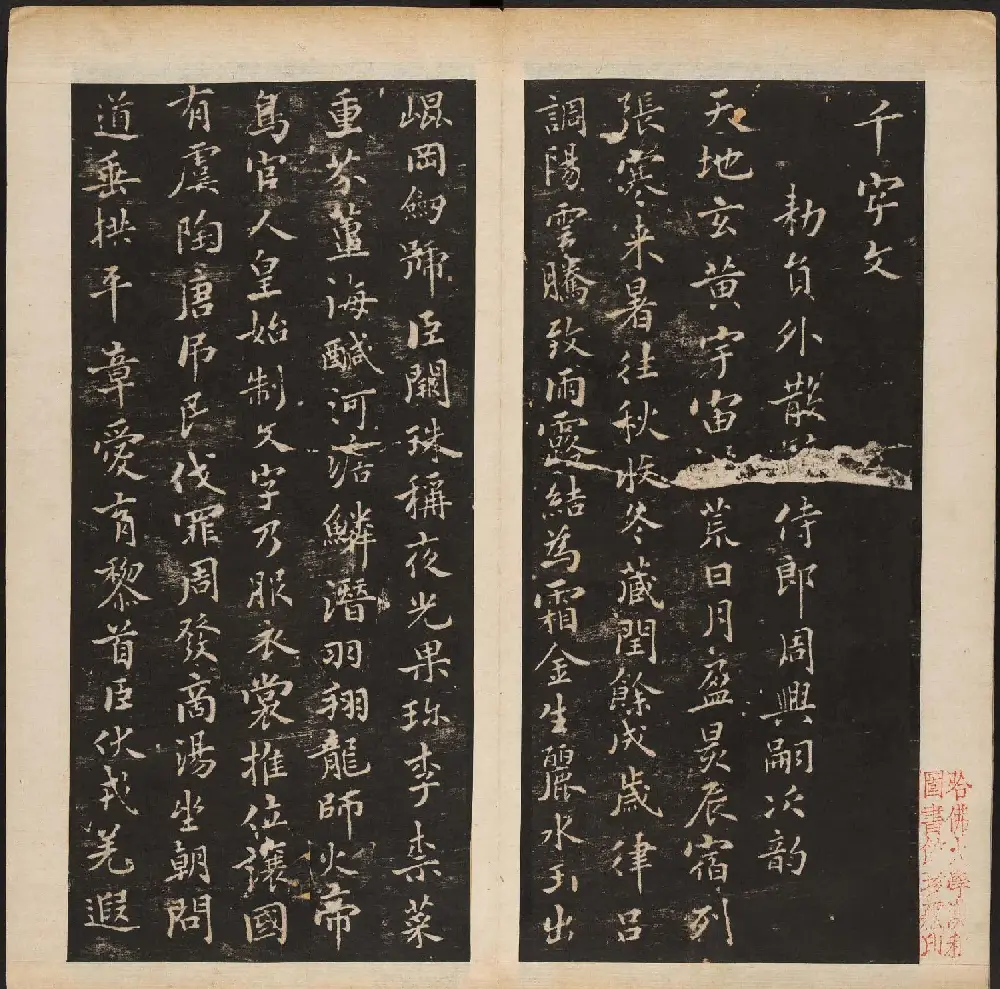 千字文
勅員外散侍郎周興嗣次韵
天地玄黃宇宙荒日月盈昃辰宿列
張寒来暑往秋收冬藏閏餘成歲律呂
調陽雲騰致雨露結為霜金生麗水玉出
崐岡劒號臣闕珠稱夜光果珎李柰菜
重芥薑海醎河淡鱗潛羽翔龍師火帝
鳥官人皇始制文字乃服衣裳推位讓國
有虞陶唐吊民伐罪周發商湯坐朝問
道垂拱平章愛育黎首臣伏戎羌遐
哈佛大學漢和
圖書館珍藏印